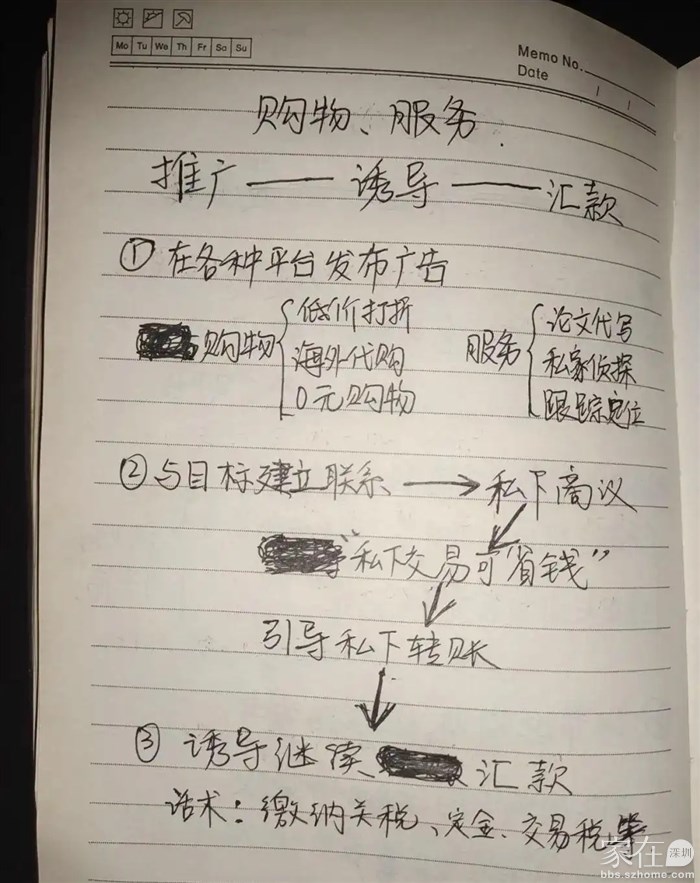 Mo Tu We Th Fr Sa Su
Memo No.
Date / /
购物、服务.
推广——诱导——汇款
①在各种平台发布广告
购物 { 低价打折 海外代购 0元购物
服务 { 论文代写 私家侦探 跟踪定位
②与目标建立联系→私下商议
“私下交易可“省钱”
引导私下转账
③诱导继续 汇款
话术：缴纳关税、定金、交易税等
家在深圳
bbs.szhome.com